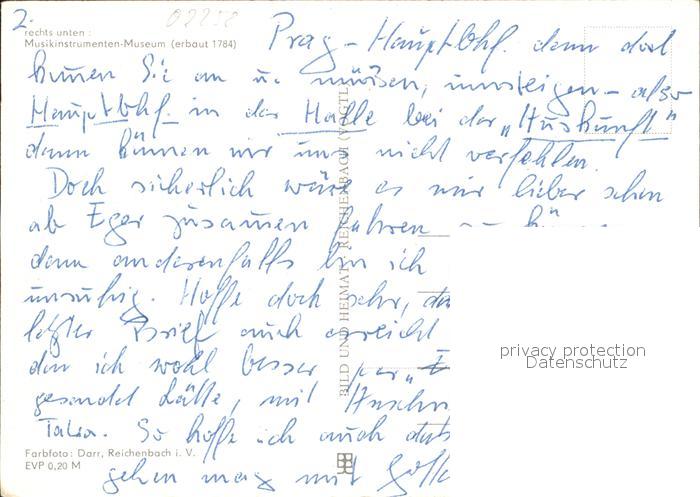 2.
08258
rechts unten :
Musikinstrumenten-Museum (erbaut 1784)
Prag - Hauptbhf. denn dort
kommen Sie an u. müssen umsteigen - also
Hauptbhf. in der Halle bei der "Auskunft"
dann können wir uns nicht verfehlen.
Doch sicherlich wäre es mir lieber schon
ab Eger zusammen fahren
denn anderenfalls bin ich
unruhig. Hoffe doch sehr,
letzter Brief auch erreicht
den ich wohl besser per
gesandt hätte, mit
So hoffe ich auch
gehen mag mit
BILD UND HEIMAT REICHENBACH (VOGTL)
privacy protection
Datenschutz
Farbfoto: Darr, Reichenbach i. V.
EVP 0,20 M